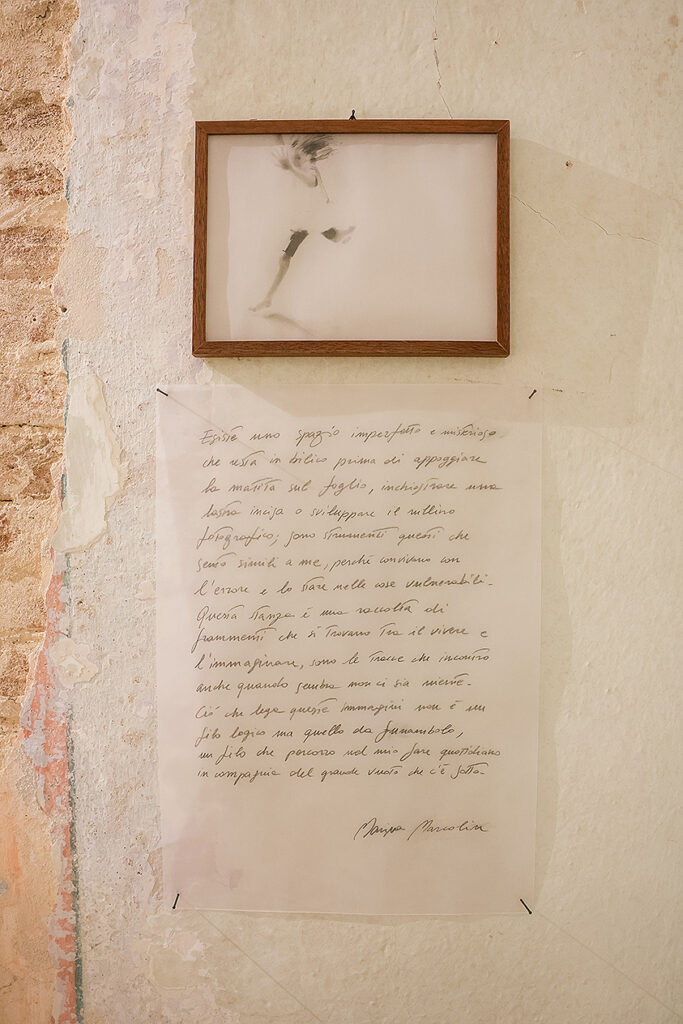 Esiste uno spazio imperfetto e misterioso
che resta in bilico prima di appoggiare
la matita sul foglio, inchiostrare una
lastra incisa o sviluppare il rullino
fotografico; sono strumenti questi che
sento simili a me, perché convivono con
l'errore e lo stare nelle cose vulnerabili.
Questa stanza è una raccolta di
frammenti che si trovano tra il vivere e
l'immaginare, sono le tracce che incontro
anche quando sembra non ci sia niente.
Ciò che lega queste immagini non è un
filo logico ma quello da funambolo,
un filo che percorro nel mio fare quotidiano
in compagnia del grande vuoto che c'è sotto.
Marina Marcolin